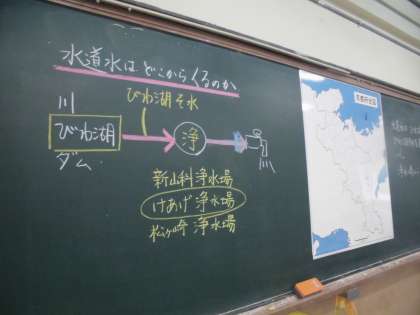 水道水はどこからくるのか
びわ湖そ水
川
びわ湖
ダム
浄
新山科浄水場
けあげ浄水場
松ヶ崎浄水場